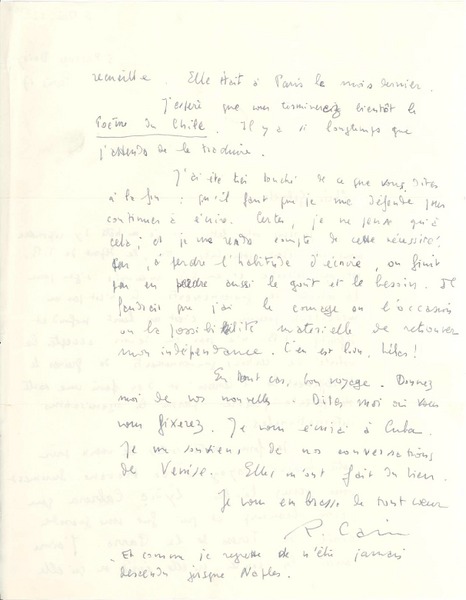 recueillie. Elle était à Paris le mois dernier.
J'espère que vous terminerez bientôt le
Poème du Chile. Il y a si longtemps que
j'attends de le traduire.
J'ai été très touché de ce que vous dites
à la fin : qu'il faut que je me défende pour
continuer à écrire. Certes, je ne pense qu'à
cela ; et je me rends compte de cette nécessité,
car, à perdre l'habitude d'écrire, on finit
par en perdre aussi le goût et le besoin. Il
faudrait que j'ai le courage ou l'occasion
ou la possibilité matérielle de retrouver
mon indépendance. C'en est loin, hélas !
En tout cas, bon voyage. Donnez
moi de vos nouvelles. Dites moi où vous
vous fixerez. Je vous écrirai à Cuba.
Je me souviens de nos conversations
de Venise. Elles m'ont fait du bien.
Je vous embrasse de tout cœur
R. Caill
Et comme je regrette de n'être jamais
descendu jusque Naples.